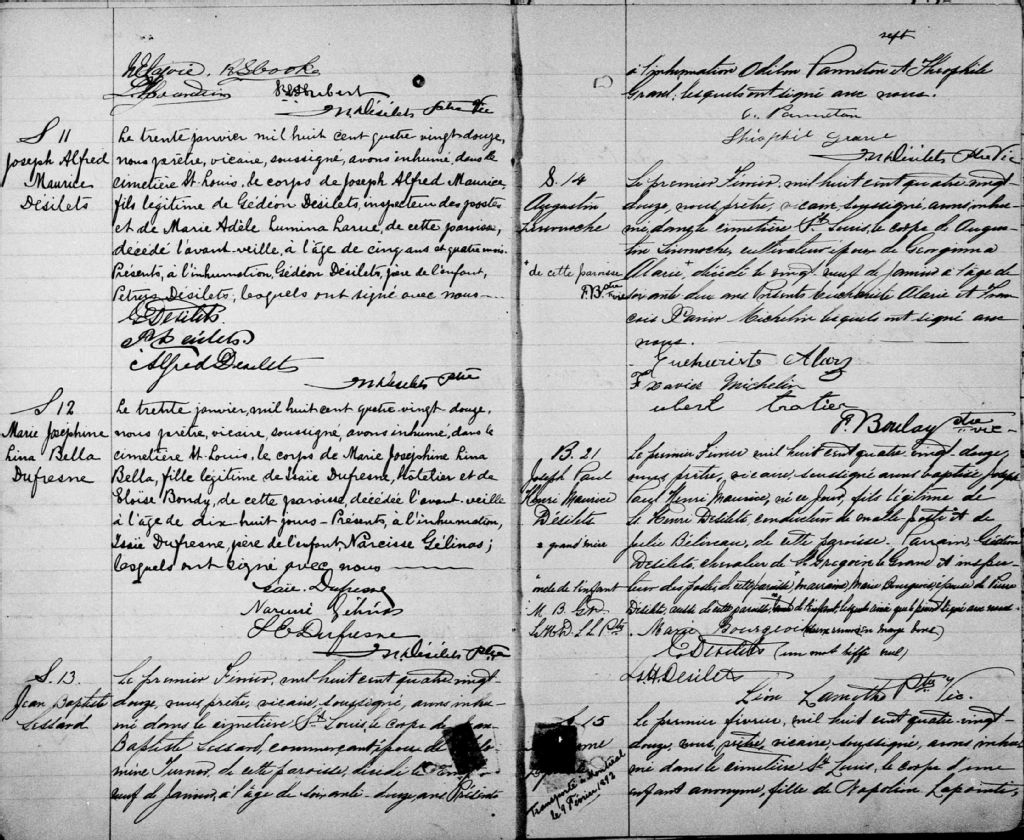 RSCooke
Hubert
NH Désilets Ptre Vic
S 11
Joseph Alfred
Maurice
Désilets
Le trente janvier mil huit cent quatre vingt douze,
nous prêtre, vicaire, soussigné, avons inhumé dans le
cimetière St. Louis, le corps de Joseph Alfred Maurice,
fils légitime de Gédéon Désilets, inspecteur des postes
et de Marie Adèle Lumina Larue, de cette paroisse,
décédé l'avant-veille, à l'âge de cinq ans et quatre mois.
Présents, à l'inhumation, Gédéon Désilets, père de l'enfant,
Petrus Désilets, lesquels ont signé avec nous
G Desilets
P Désilets
Alfred Desilets
NH Désilets Ptre
S 12
Marie Joséphine
Lina Bella
Dufresne
Le trente janvier, mil huit cent quatre vingt douze,
nous prêtre, vicaire, soussigné, avons inhumé, dans le
cimetière St. Louis, le corps de Marie Josephine Lina
Bella, fille légitime de Isaïe Dufresne, Hôtelier et de
Eloïse Bondy, de cette paroisse, décédée l'avant-veille
à l'âge de dix huit jours. Présents, à l'inhumation,
Isaïe Dufresne, père de l'enfant, Narcisse Gélinas;
lesquels ont signé avec nous
Isaïe Dufresne
Gélinas
L E Dufresne
NH Désilets Ptre
S. 13
Jean Baptiste
Lessard
Le premier Février, mil huit cent quatre vingt
douze, nous prêtre, vicaire, soussigné, avons inhu-
mé dans le cimetière St Louis, le corps de Jean
Baptiste Lessard, commerçant époux de
mine de cette paroisse, décédé le vingt
neuf de Janvier, à l'âge de soixante-douze ans Présents
sept
à l'inhumation Odilon Panneton et Théophile
Grand; lesquels ont signé avec nous.
O. Panneton
Théophile
NH Désilets Ptre Vic
S. 14
Augustin
Lesmoche
"de cette paroisse
F. B. Ptre Vic
Le premier Février mil huit cent quatre vingt
douze, nous, prêtre, vicaire, soussigné, avons inhu-
mé, dans le cimetière St Louis, le corps de Augus-
tin cultivateur époux de Georgianna
Alarie" décédé le vingt neuf de Janvier à l'âge de
soixante deux ans Présents Eucharite Alarie et Fran-
çois Xavier Michelin lesquels ont signé avec
nous.
Alary
F Xavier Michelin
F. Boulay Ptre Vic
B. 21
Joseph Paul
Henri Maurice
Désilets
"grand'mère
"oncle de l'enfant
M. B. G. D.
L. H. D. L. L. Ptre
Le premier Février mil huit cent quatre vingt douze,
nous, prêtre, vicaire soussigné avons baptisé Joseph
Paul Henri Maurice, né ce jour, fils légitime de
Ls Henri Désilets, conducteur de malle poste et de
Julie Béliveau, de cette paroisse. Parrain, Gédéon
Désilets, chevalier de St. Grégoire le Grand et inspec-
teur des Postes de cette paroisse" marraine, Marie Bourgeois épouse de Pierre
Désilets, aussi de cette paroisse, de l'enfant, lesquels ainsi que le père ont signé avec nous
Marie Bourgeois
G Désilets (un mot biffé nul)
LsH Desilets
Léon Lamothe Ptre Vic.
S 15
Transporté à Montréal
le 9 Février 1892
Le premier fevrier, mil huit cent quatre vingt-
douze, nous, prêtre, vicaire, soussigné, avons inhu-
mé dans le cimetière St Louis, le corps d'une
enfant anonyme, fille de Napoléon Lapointe,